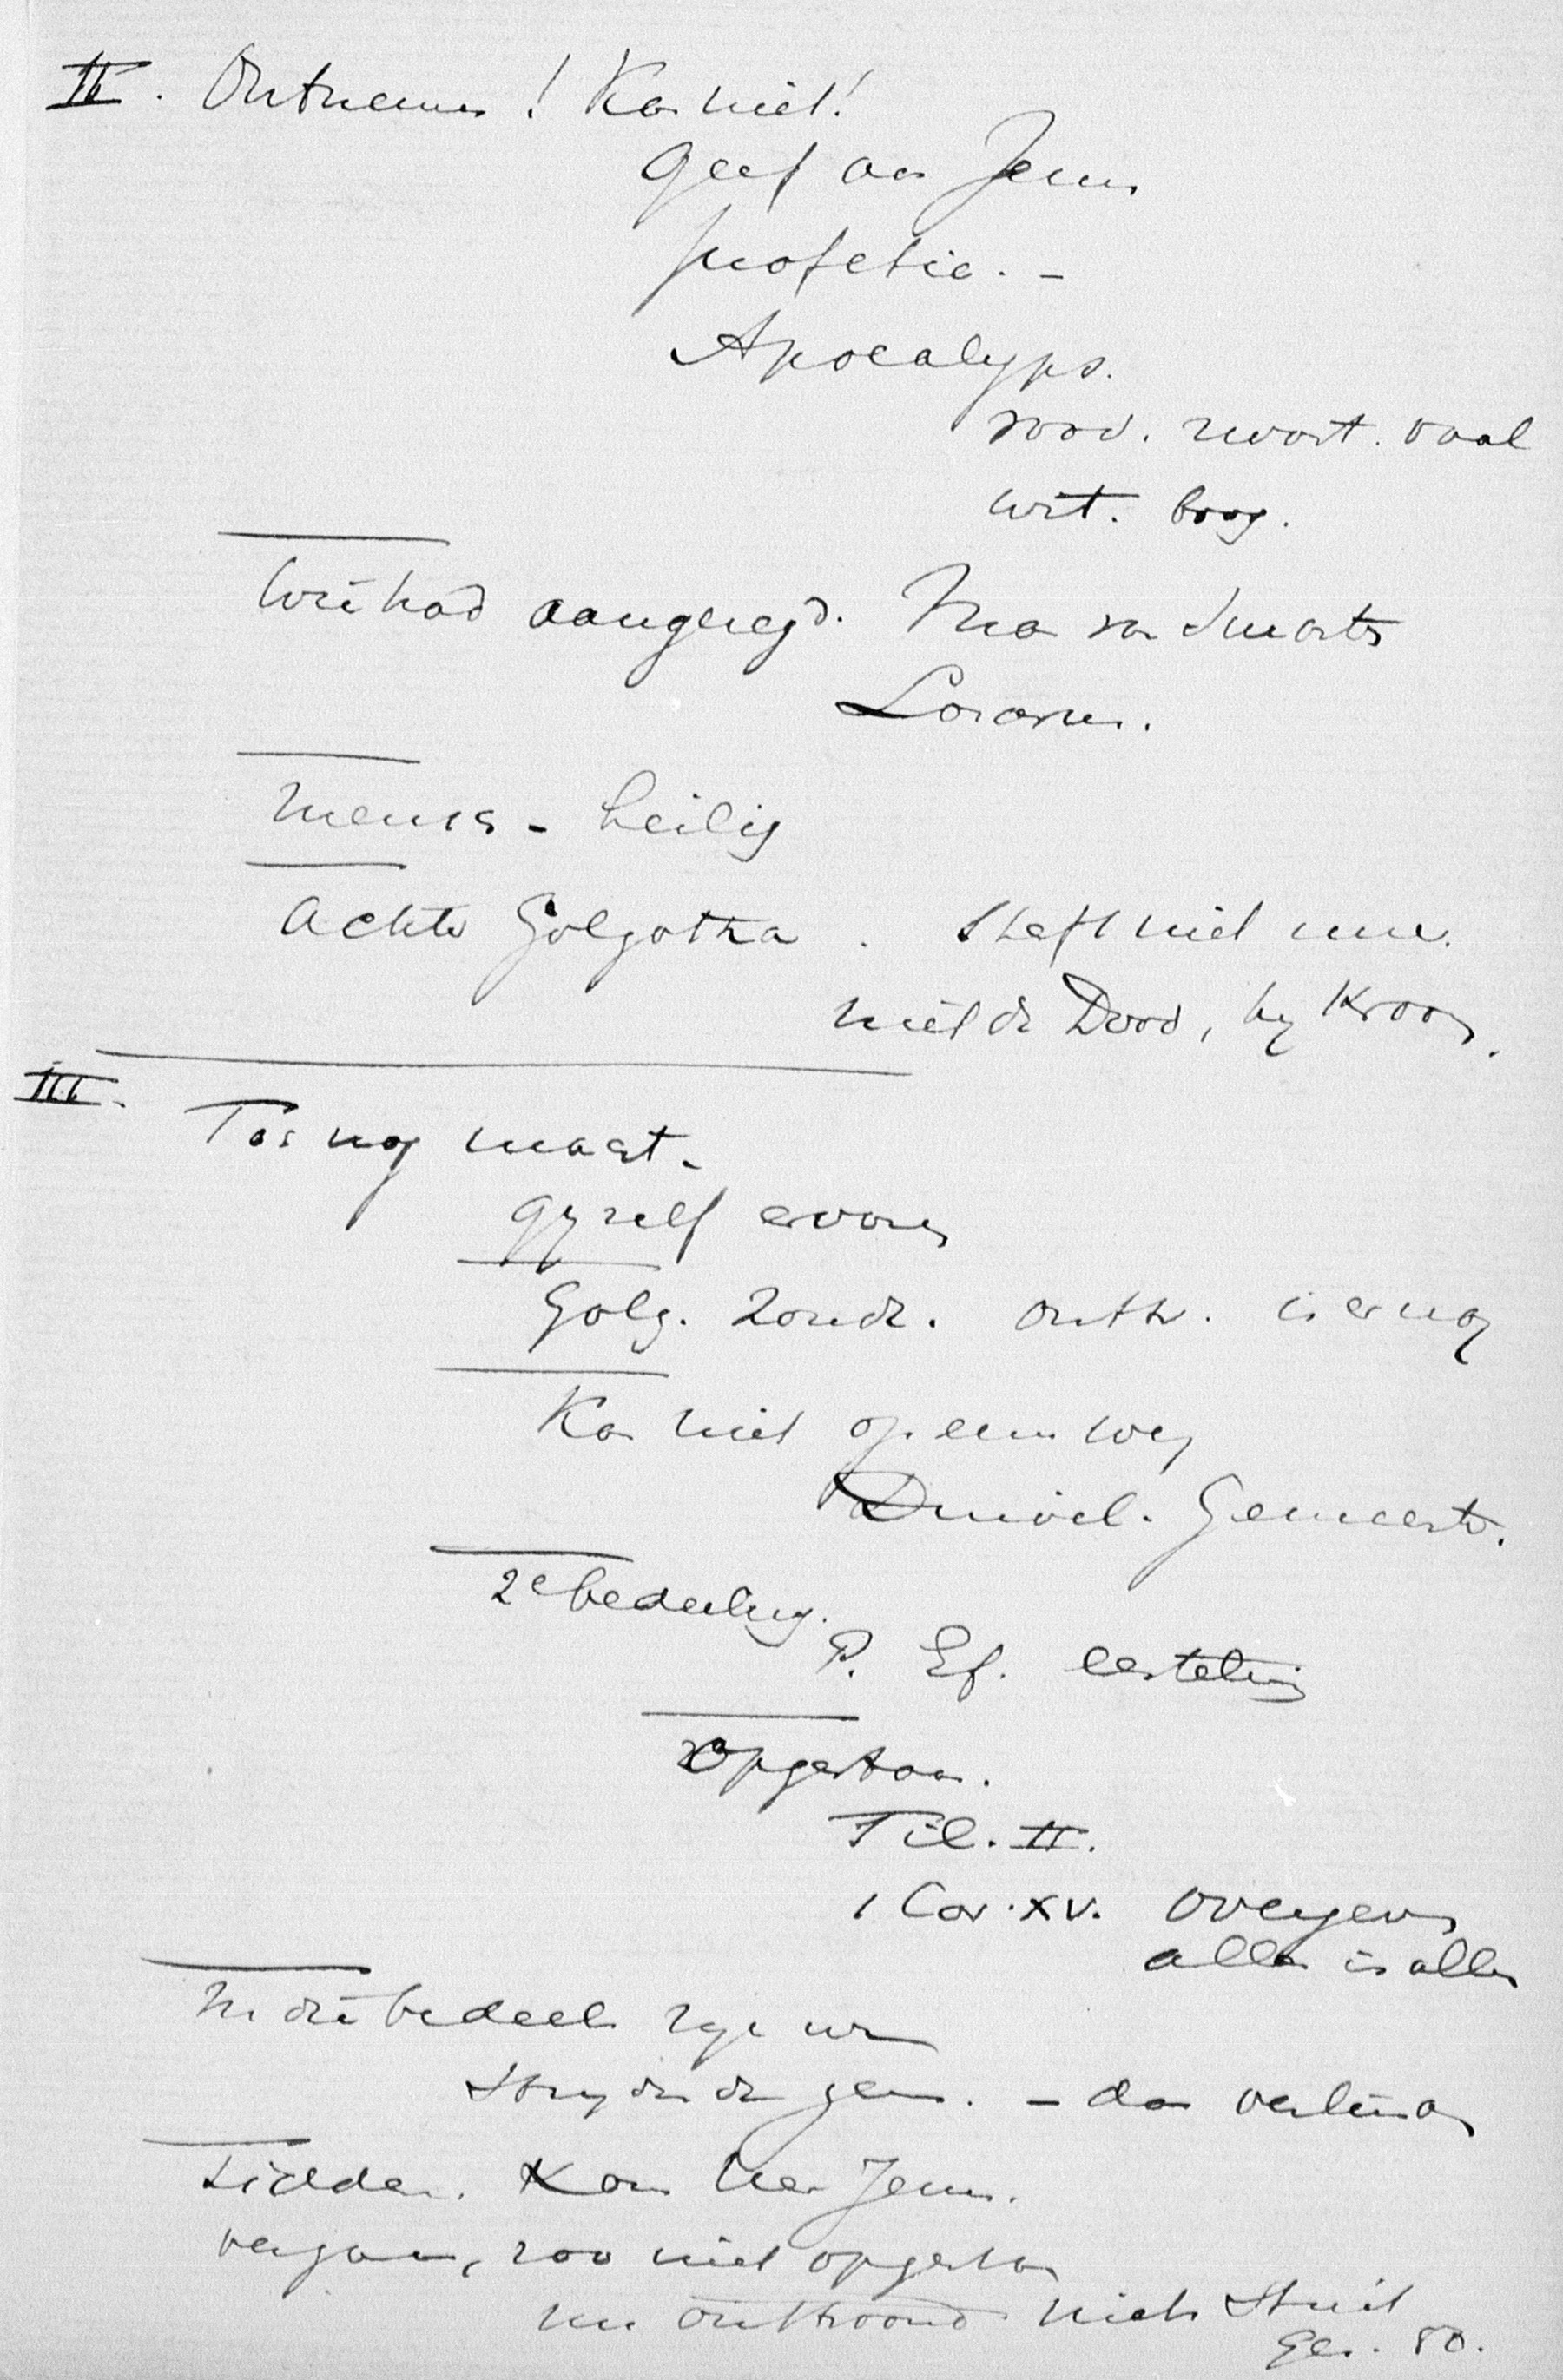 II. Ontnemen! Kan niet!
Geef aan Jezus
profetie. -
Apocalyps.
rood. zwart. vaal
wit. boog.
Wie had aangelegd. Man van Smarten
Lazarus.
Mensch - heilig
Achter Golgotha. Heeft niet meer.
niet de Dood, hij Kroon.
III. Toch nog macht.
Gij zelf ervaren
Golg. Zonde. is er nog
Kan niet op eens weg
Duivel. Gemeente.
2e bedeeling.
P. Ef.
opgestaan.
Fil. II.
1 Cor. XV. Overgeven
alles in allen
In die bedeel. zijn we
Strijdende gem. - dan
Sidder. Kon Heer Jezus.
vergaan, zoo niet opgestaan
nu onttroond niets Stuit
Gez. 50.